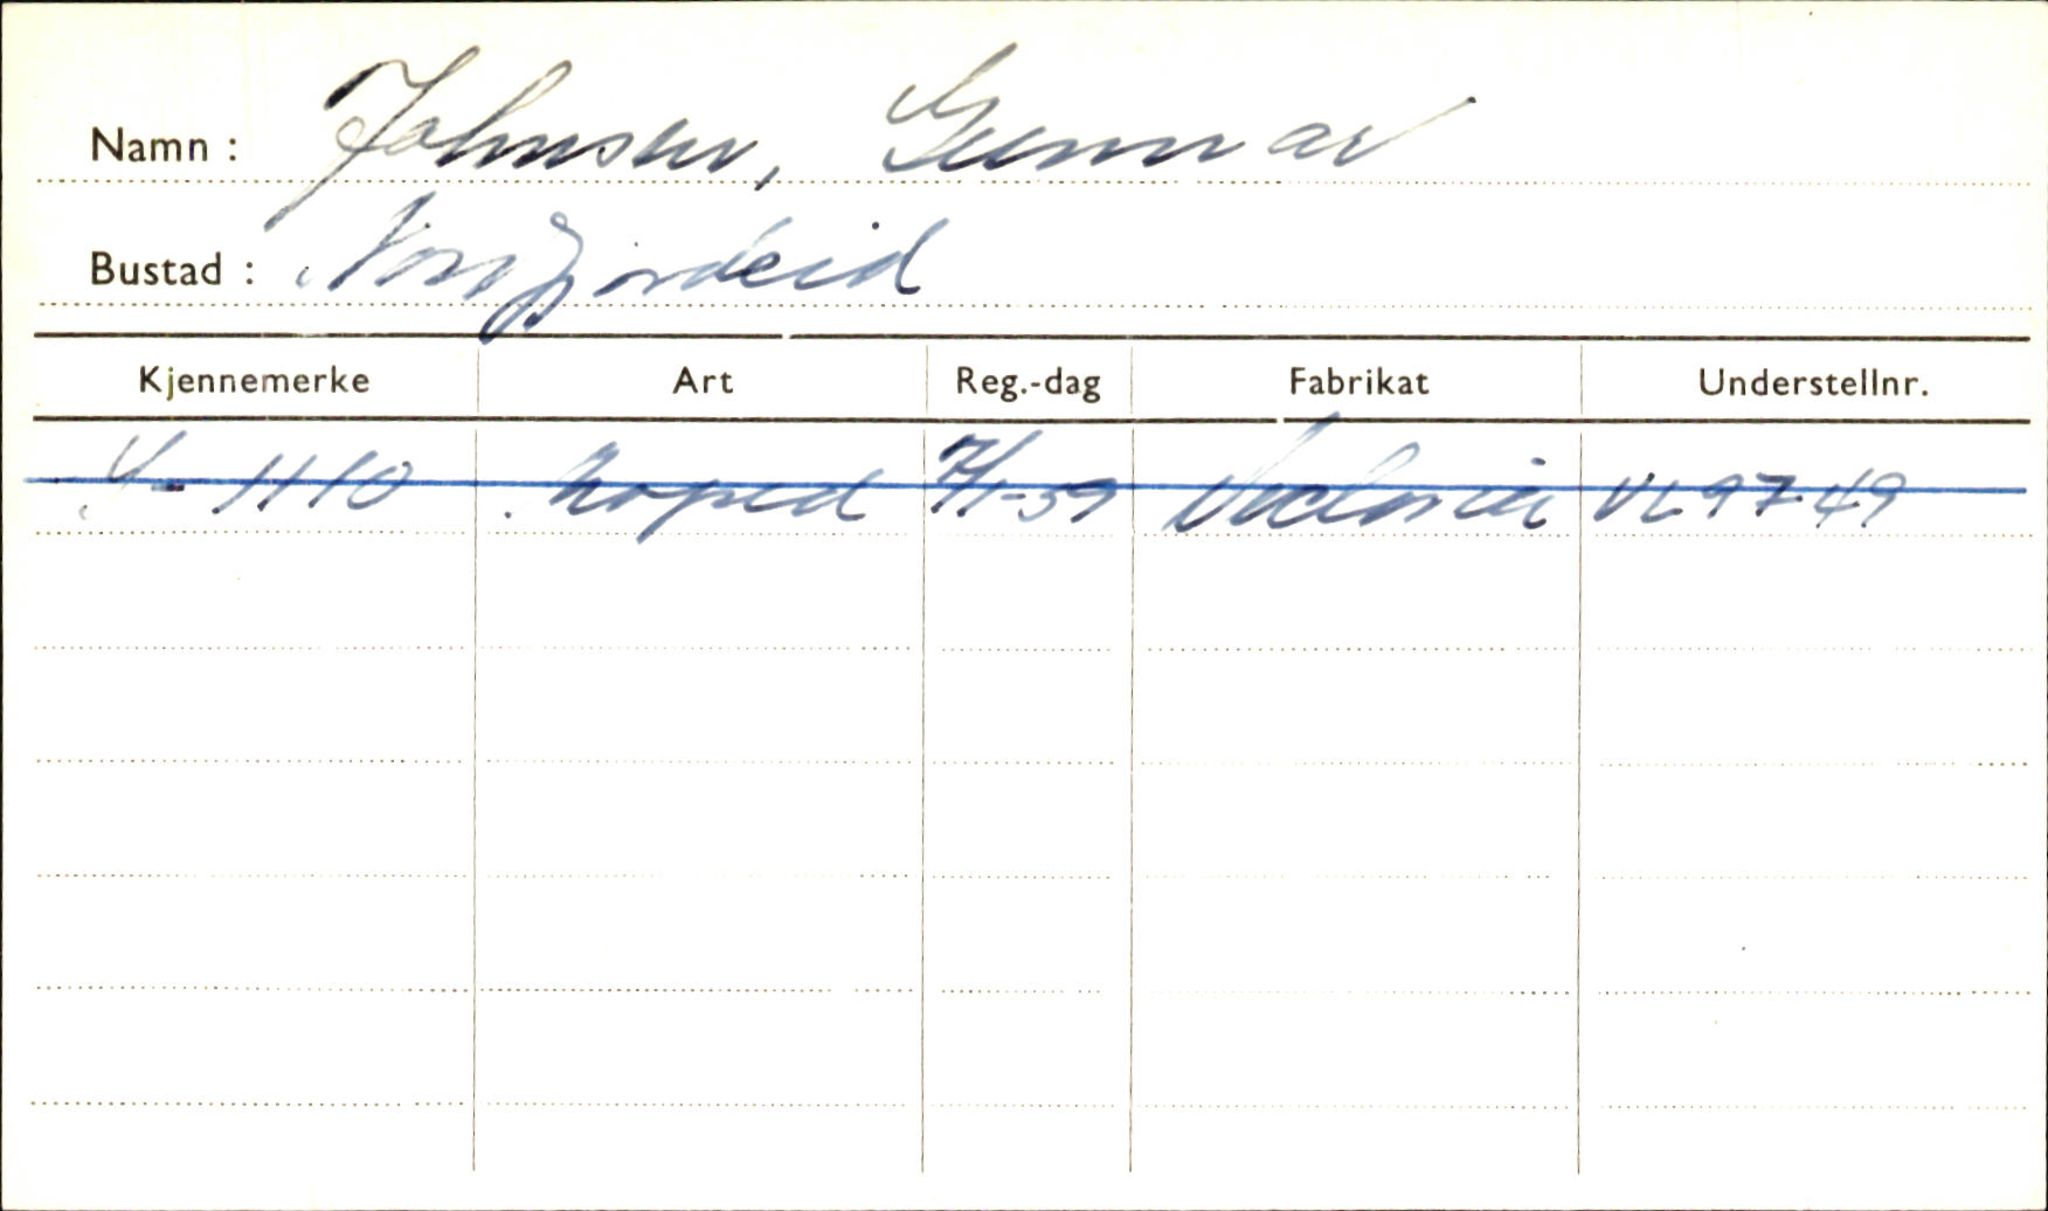 Namn : Johnsen, Gunnar
Bustad : Nordfjordeid
Kjennemerke Art Reg.-dag Fabrikat Understellnr.
S-1110 Moped 7/1-59 Victoria VL 9749